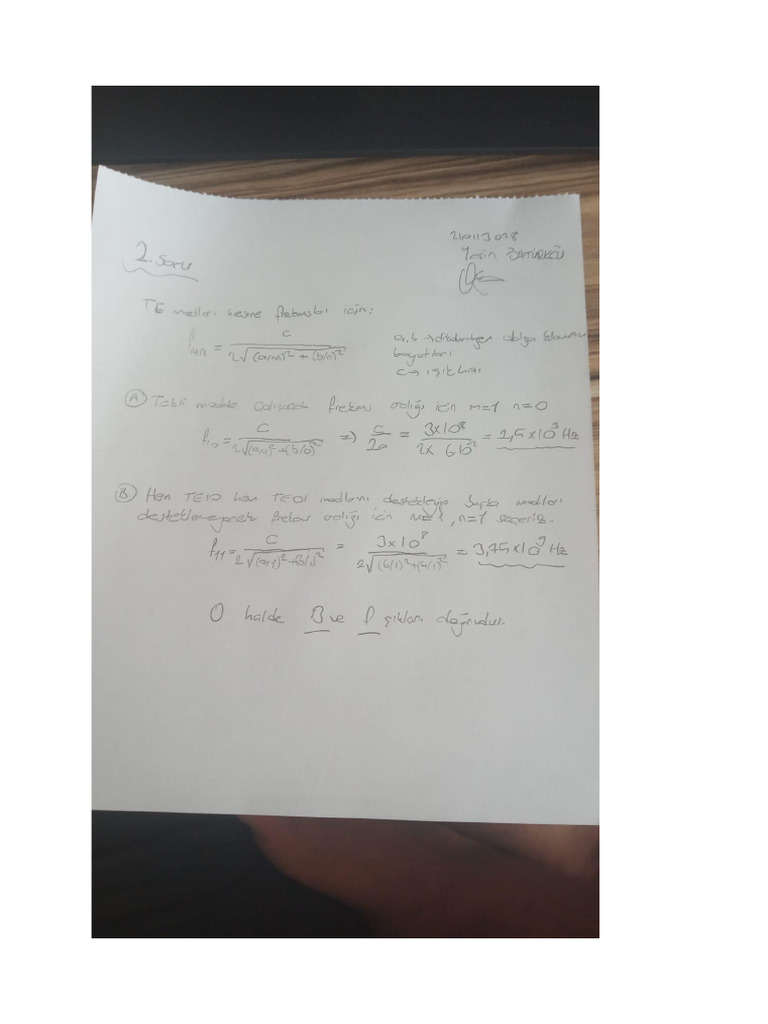 2. Soru
Yasin
TE modları kesme frekansı için:
f_mn = c / 2√((a/m)² + (b/n)²)
a, b → dikdörtgen dalga
boyutları
c → ışık hızı
(A) Tekli modda çalışacak frekans aralığı için m=1 n=0
f₁₀ = c / 2√((a/1)² + (b/0)²) => c / 2a = 3x10⁸ / 2x 6 10⁻² = 2,5 x 10⁹ Hz
(B) Hem TE10 hem TE01 modlarını destekleyip başka modları
desteklemeyecek frekans aralığı için n=1 seçeriz.
f₁₁ = c / 2√((a/1)² + (b/1)²) = 3x10⁸ / 2√((6/1)² + (4/1)²) = 3,75 x 10⁹ Hz
O halde B ve şıkları doğrudur.